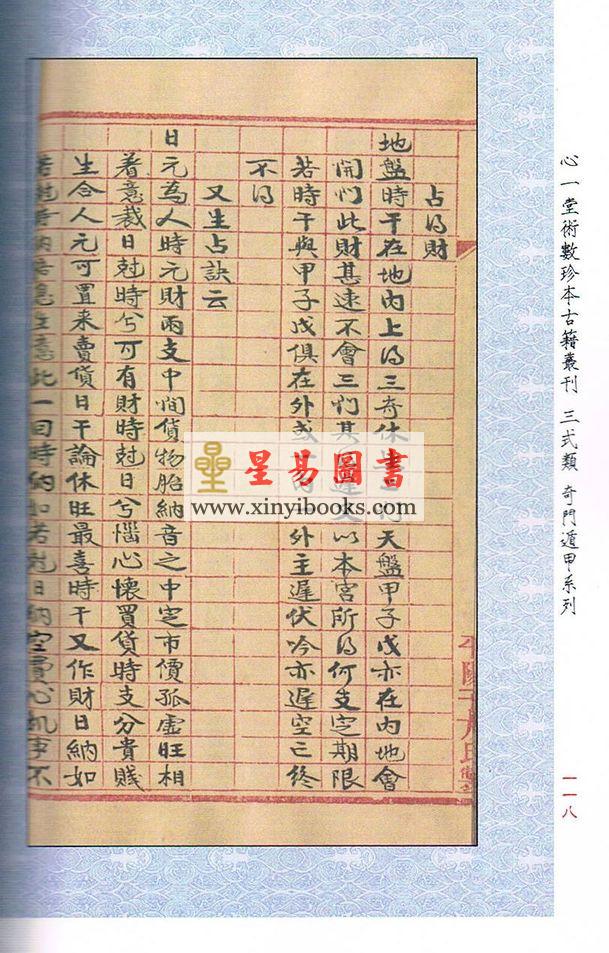 心一堂術數珍本古籍叢刊 三式類 奇門遁甲系列
一一八
占得財
地盤時干在地內上得三奇休天盤甲子戊亦在內地會
開門此財甚速不會三門其以本宮所得何支定期限
若時干與甲子戊俱在外或外主遲伏吟亦遲空亡終
不得
又生占訣云
日元為人時元財兩支中間貨物胎納音之中定市價孤虛旺相
着意裁日尅時兮可有財時尅日兮惱心懷買貨時支分貴賤
生合人元可置来賣貨日干論休旺最喜時干又作財日納如
若尅時納生意此一回時納如若尅日納空費心机事不
星易圖書
www.xinyibooks.com